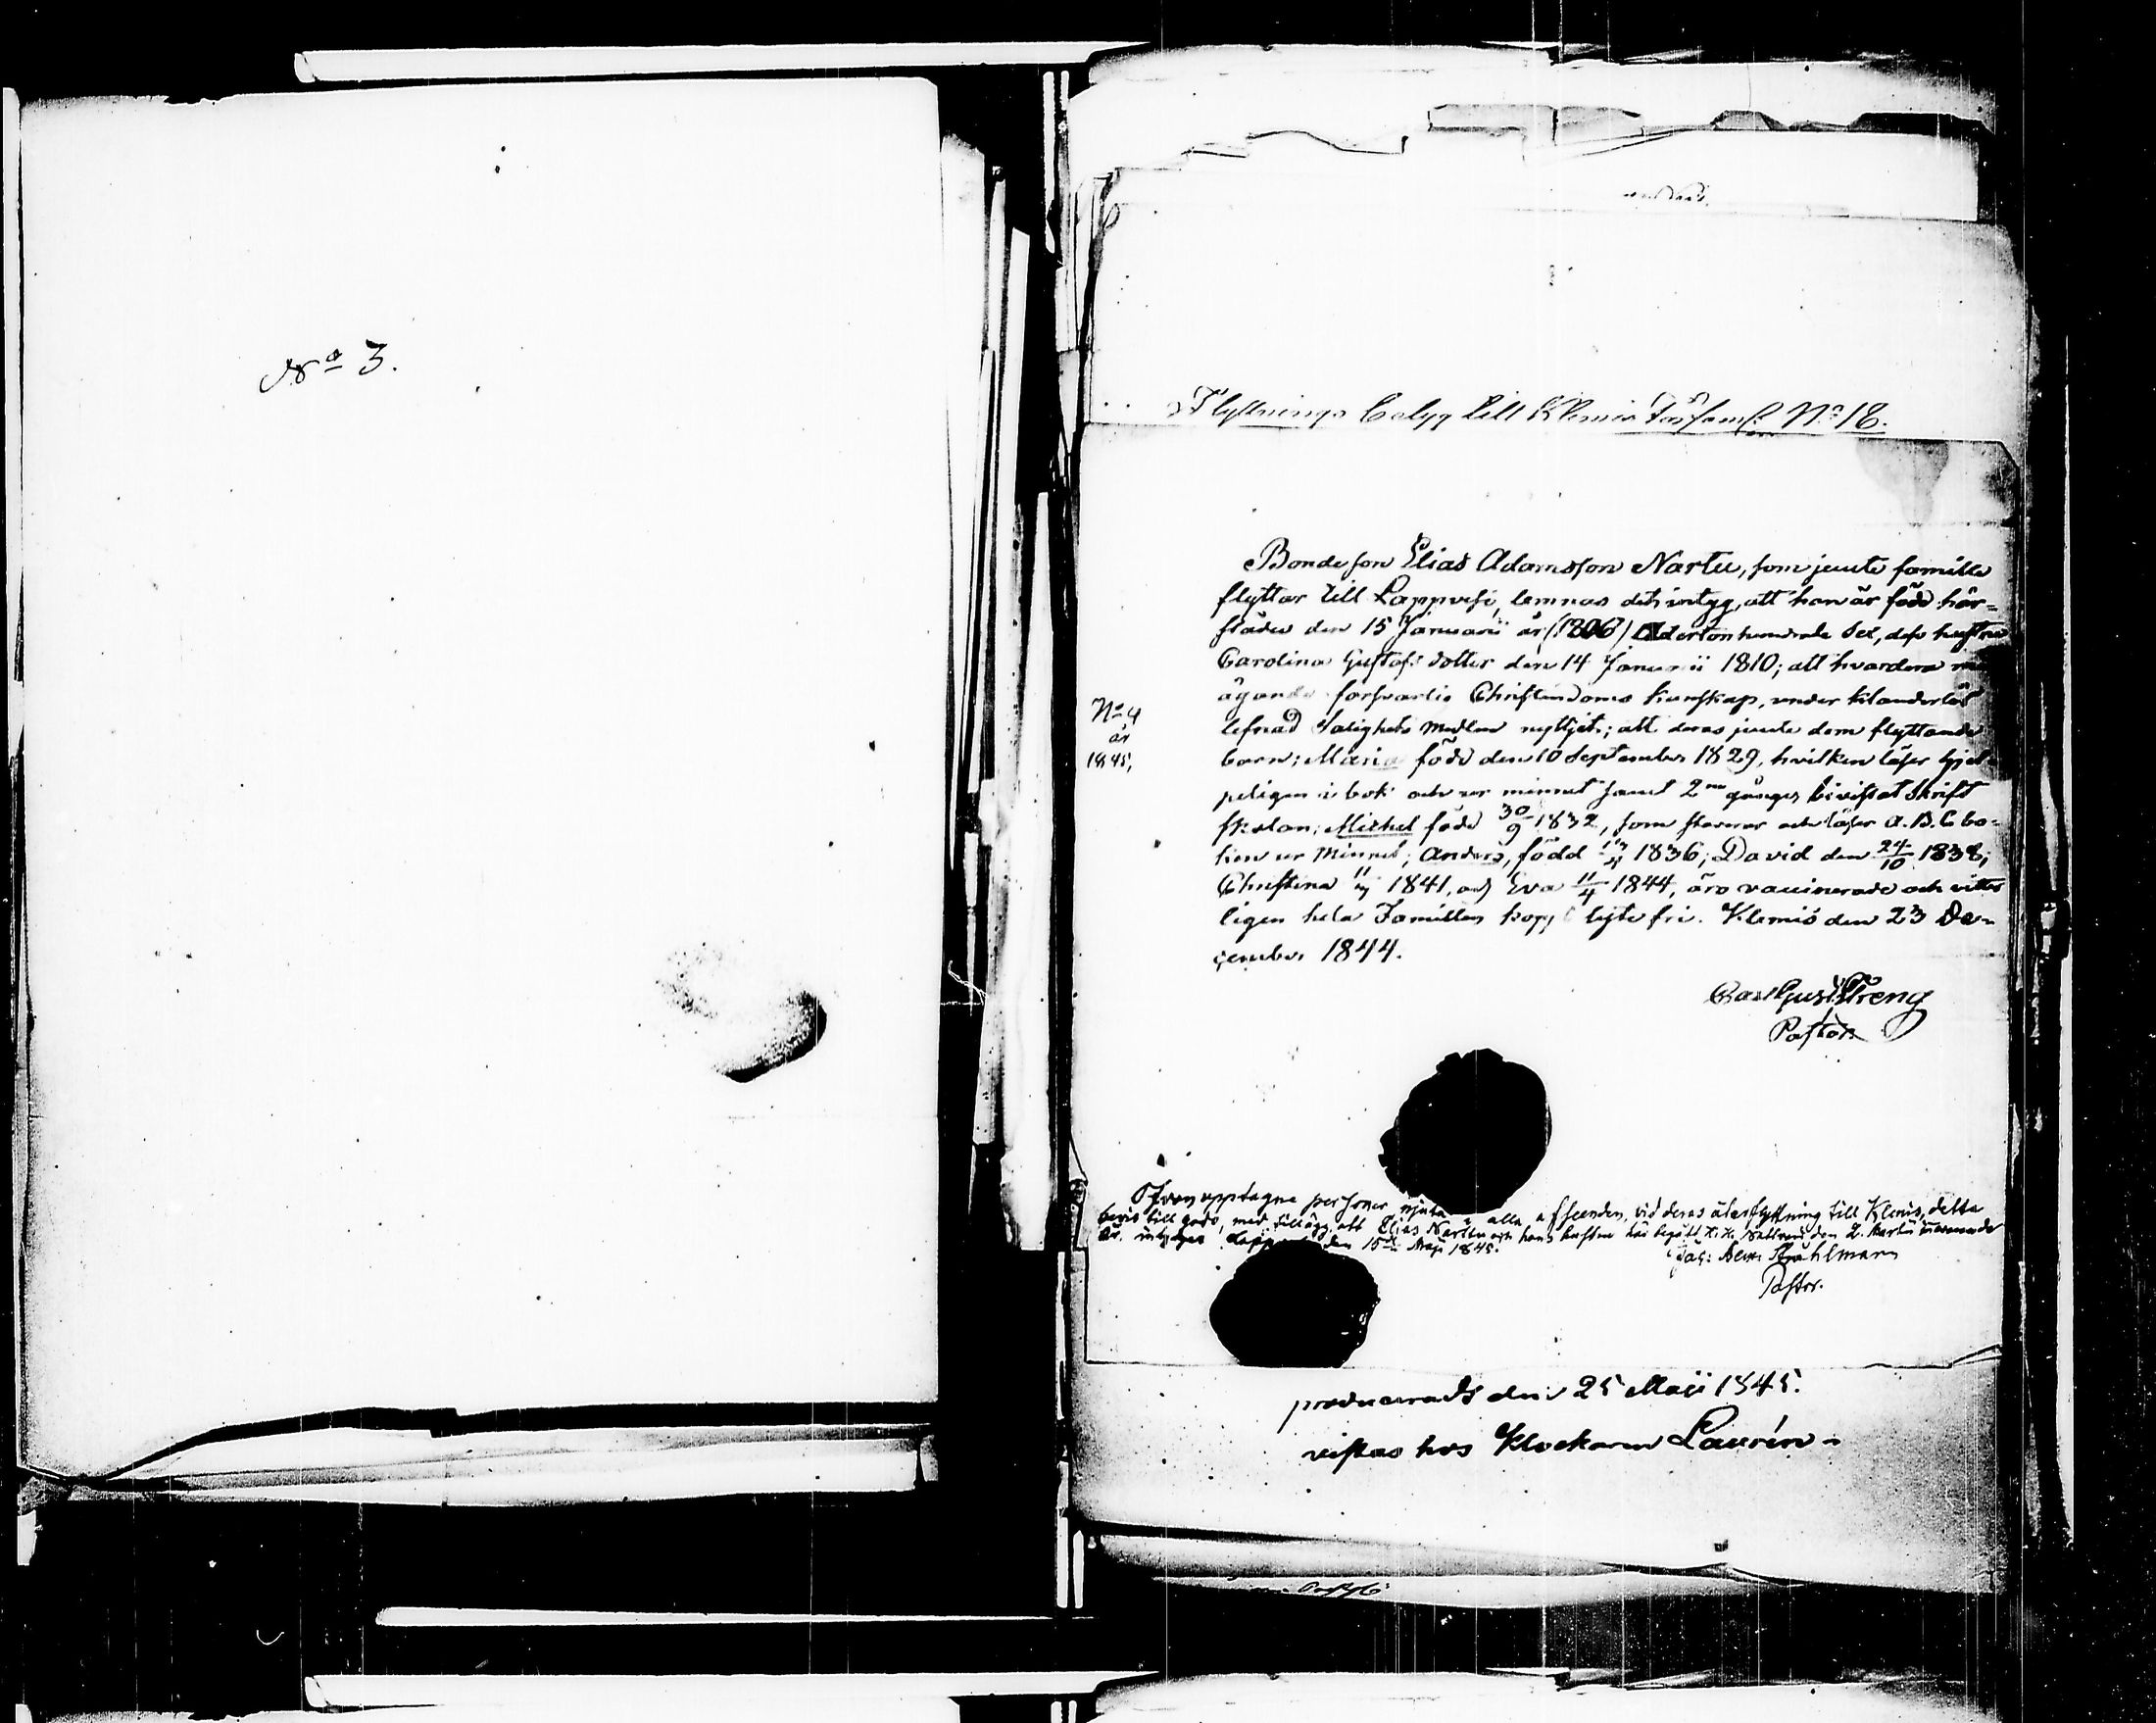 No 3.
Flyttnings belyg till Klemis församl. No 18.
Bondeson Elias Adamsson Nartu, som jemte famille
flyttar till Lappvesi, lemnas det intyg, att han är född här-
städes den 15 Januarii år (1806) Adertonhundrade Sex, dess hustru
Carolina Gustafs dotter den 14 Januarii 1810; att hvardera med
ägande forsvarlig Christendoms kunskap, under klanderlös
lefnad Salighets medlen nyttjat; att deras jemte dem flyttande
barn: Maria född den 10 September 1829, hvilken läser hjel-
peligen i bok och ur minnet samt 2 ne gånger bivistat Skrift
skolan; Michel född 30/9 1832, som stafvar och läser A.B.C bo-
ken ur Minnet; Anders, född 1836; David den 24/10 1838;
Christina 1841, och Eva 11/4 1844, äro vaccinerade och vitter
ligen hela Familien lyte fri. Klemis den 23 De-
cember 1844.
No 4
år
1845,
Carl Gust Streng
Pastor.
Ofvan upptagne personer njuta i alla afseenden, vid deras återflyttning till Klemis, detta
bevis till godo, med tillägg, att Elias Narttu och hans hustru här begått H. H. Nattvard den 2. Martii innevarande
år, intygar Lappvesi den 15de Maji 1845.
Jac: Alex: Stråhlman
Pastor.
producerads den 25 Maji 1845.
vistas hos Klockaren Laurén